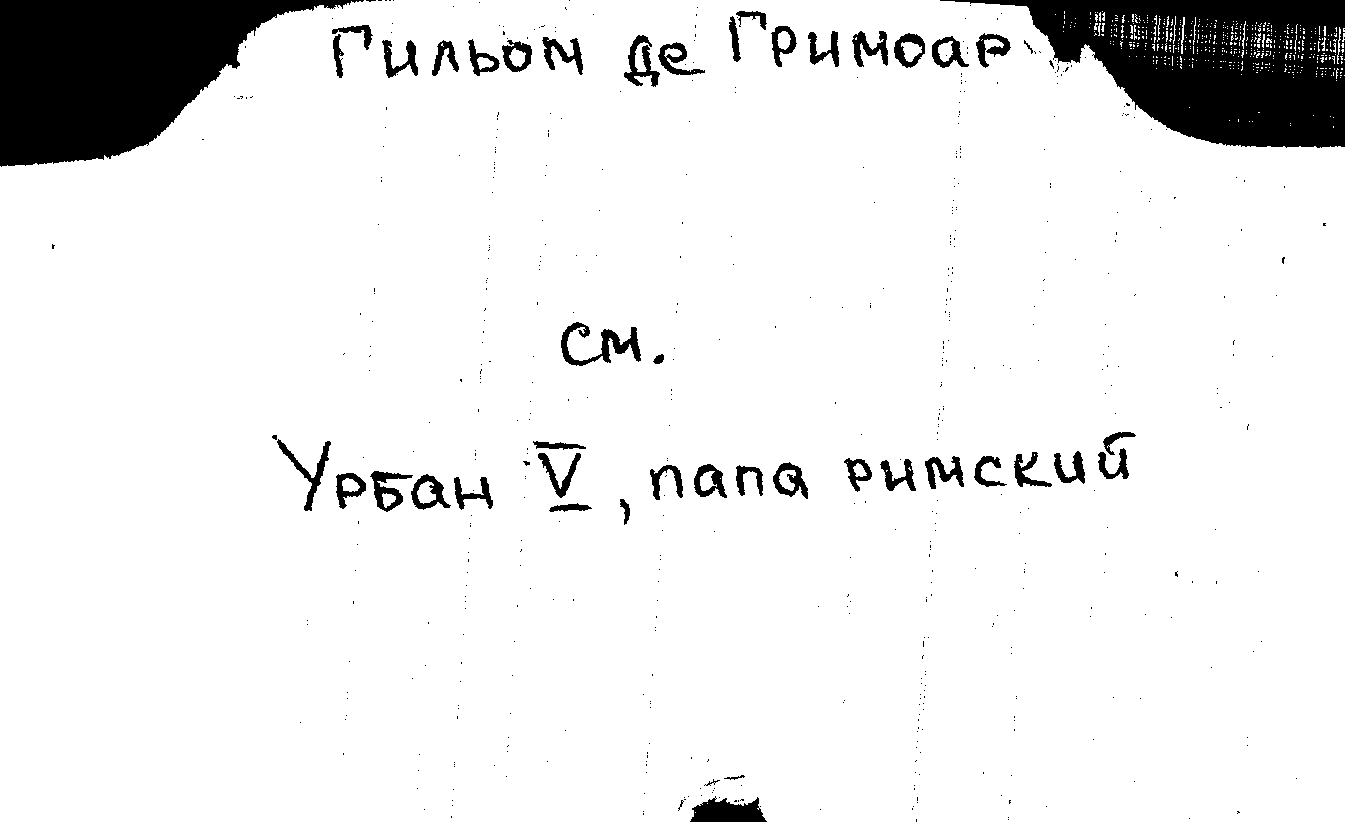 Гильом де Гримоар
см.
Урбан V, папа римский